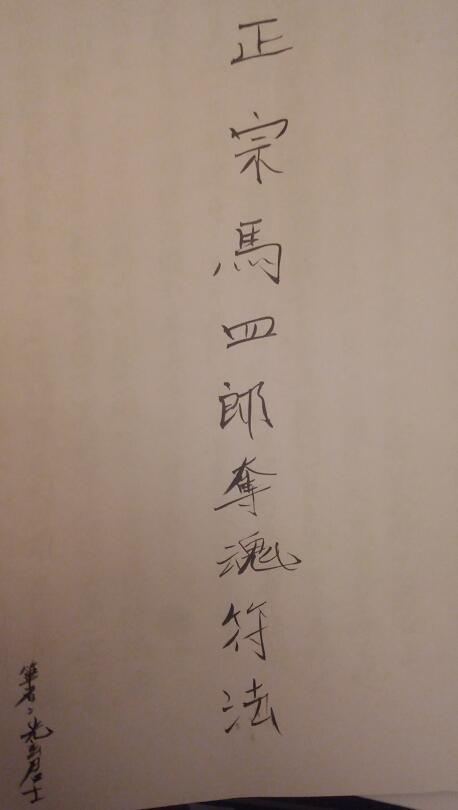 正宗馬四郎奪魂符法
筆者：光玄居士